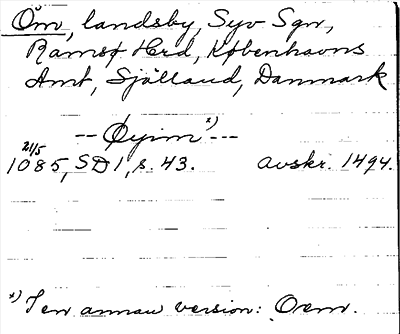 Öm, landsby, Syv Sgn,
Ramsø Hrd, Københavns
Amt, Själland, Danmark
-- Øyim *) ---
21/5
1085, SD1, s. 43. avskr. 1494.
*) I en annan version: Oem.